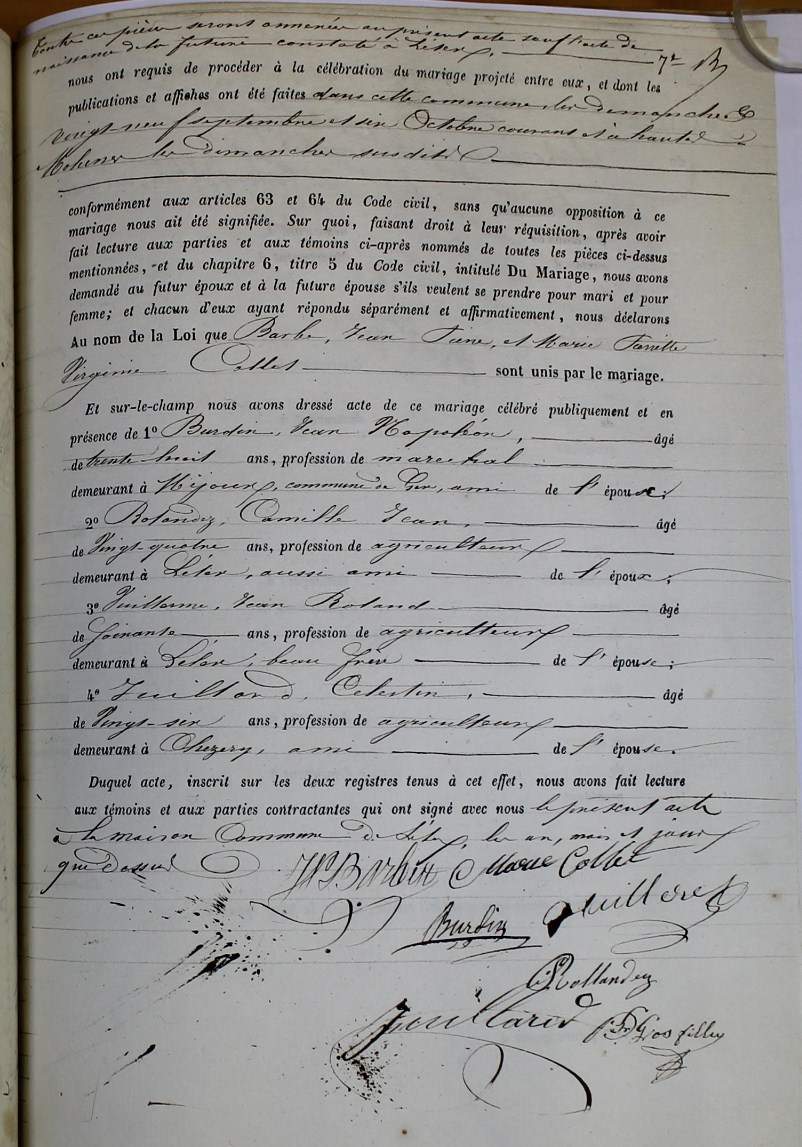 Toutes ces pièces seront annexées au présent acte sauf l'acte de
naissance de la future constaté à Lélex,
nous ont requis de procéder à la célébration du mariage projeté entre eux, et dont les
publications et affiches ont été faites dans cette commune les dimanches
vingt neuf septembre et six Octobre courant et à haute
les dimanches susdits
conformément aux articles 63 et 64 du Code civil, sans qu'aucune opposition à ce
mariage nous ait été signifiée. Sur quoi, faisant droit à leur réquisition, après avoir
fait lecture aux parties et aux témoins ci-après nommés de toutes les pièces ci-dessus
mentionnées, et du chapitre 6, titre 5 du Code civil, intitulé Du Mariage, nous avons
demandé au futur époux et à la future épouse s'ils veulent se prendre pour mari et pour
femme; et chacun d'eux ayant répondu séparément et affirmativement, nous déclarons
Au nom de la Loi que Barbe, Jean et Marie
Virginie Collet sont unis par le mariage.
Et sur-le-champ nous avons dressé acte de ce mariage célébré publiquement et en
présence de 1º Burdin, Jean Napoléon, âgé
de trente huit ans, profession de marechal
demeurant à commune de ami de l'époux;
2º Rolandez, Camille Jean, âgé
de Vingt-quatre ans, profession de agriculteur
demeurant à Lélex, aussi ami de l'époux;
3º Jean Roland âgé
de Soixante ans, profession de agriculteur
demeurant à Lélex, beau frère de l'épouse;
4º Célestin, âgé
de Vingt-six ans, profession de agriculteur
demeurant à Chezery, ami de l'épouse.
Duquel acte, inscrit sur les deux registres tenus à cet effet, nous avons fait lecture
aux témoins et aux parties contractantes qui ont signé avec nous le présent acte
à la maison Commune de Lélex, les an, mois et jour
que dessus
Marie Collet
Burdin
Rollandez